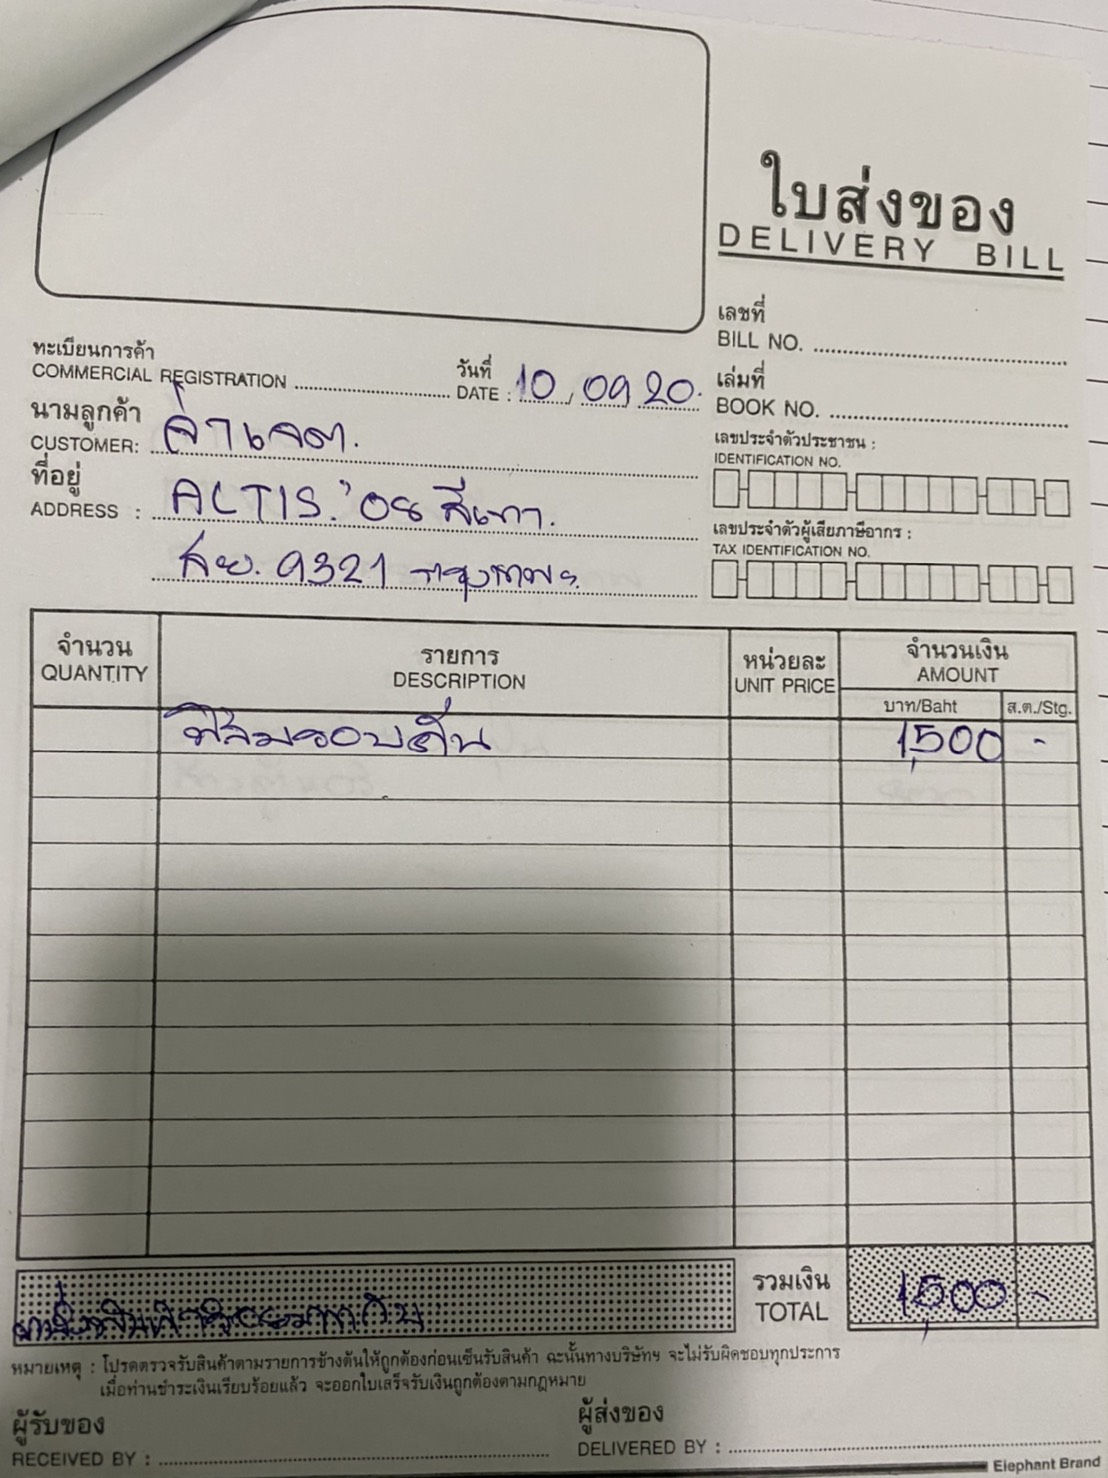 ใบส่งของ
DELIVERY BILL
เลขที่
BILL NO.
ทะเบียนการค้า
COMMERCIAL REGISTRATION
วันที่
DATE : 10 / 09 20.
เล่มที่
BOOK NO.
นามลูกค้า
CUSTOMER: จ่าเจต.
เลขประจำตัวประชาชน :
IDENTIFICATION NO.
ที่อยู่
ADDRESS : ALTIS.'08 สีเทา.
เลขประจำตัวผู้เสียภาษีอากร :
TAX IDENTIFICATION NO.
9321 กรุงเทพฯ.
จำนวน
QUANTITY
รายการ
DESCRIPTION
หน่วยละ
UNIT PRICE
จำนวนเงิน
AMOUNT
บาท/Baht
ส.ต./Stg.
ฟิล์มรอบคัน 1,500 -
รวมเงิน
TOTAL
1,500 -
หมายเหตุ : โปรดตรวจรับสินค้าตามรายการข้างต้นให้ถูกต้องก่อนเซ็นรับสินค้า ฉะนั้นทางบริษัทฯ จะไม่รับผิดชอบทุกประการ
เมื่อท่านชำระเงินเรียบร้อยแล้ว จะออกใบเสร็จรับเงินถูกต้องตามกฎหมาย
ผู้รับของ
RECEIVED BY :
ผู้ส่งของ
DELIVERED BY :
Elephant Brand